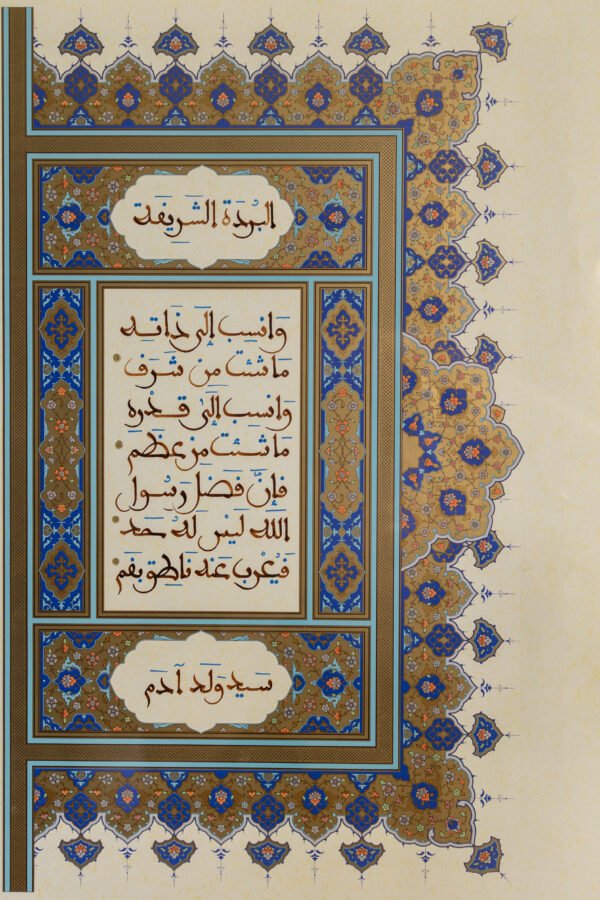 البُردَة الشَّريفَة
وَانسِب إلَى ذَاتِهِ
مَا شئتَ مِن شَرَف
وَانسِب إلَى قَدرِهِ
مَا شئتَ مِن عِظَمِ
فَإِنَّ فَضلَ رَسُول
اللهِ لَيْسَ لَهُ حَد
فَيُعْرِبَ عَنه نَاطِق بِفَمِ
سَيد وَلَد آدَم